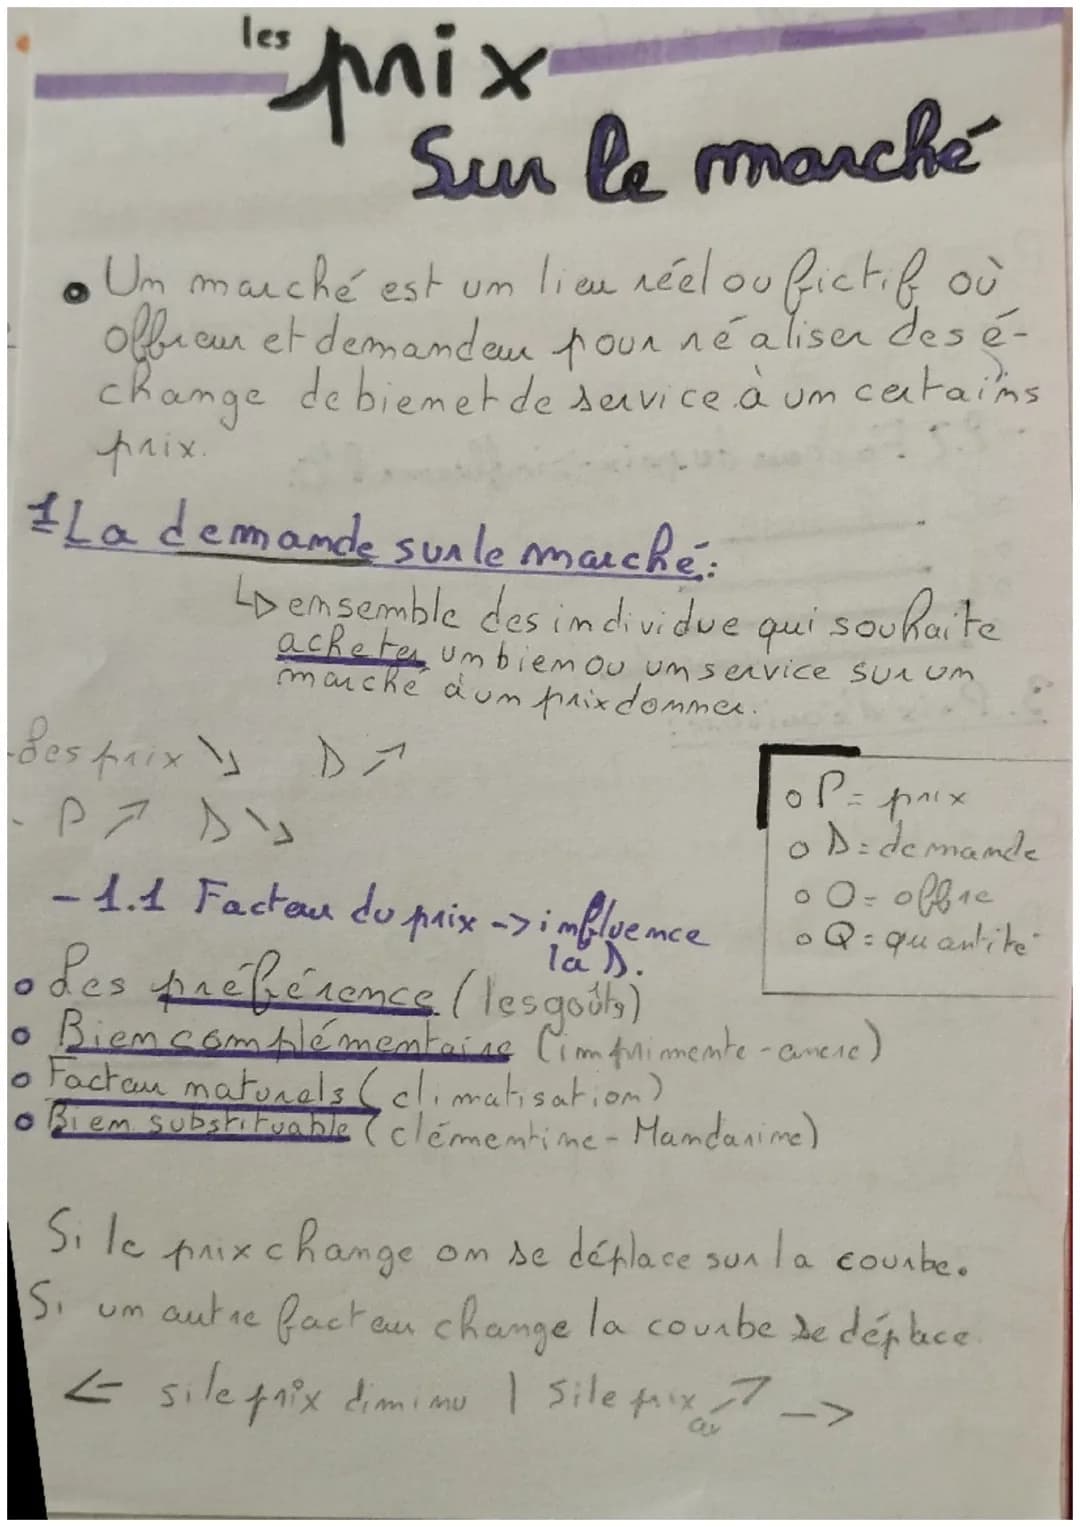 les prix
Sur le marché
• Un marché est un lieu réel ou fictif où
offreur et demandeur pour réaliser des é-
change de bien et de service à un certains
prix.
1 La demande sur le marché:
↳ ensemble des individue qui souhaite
acheter un bien ou un service sur un
marché à un prix donner.
-Les prix ↘ D ↗
- P ↗ D ↘
o P = prix
o D = demande
o O = offre
o Q = quantité
- 1.1 Facteur du prix -> influence
la D.
o Les préférence (les goûts)
o Bien complémentaire (imprimente - ancre)
o Facteur naturels (climatisation)
o Bien substituable (clémentine - Mandarine)
Si le prix change on se déplace sur la courbe.
Si un autre facteur change la courbe se déplace
<- si le prix diminu | Si le prix ↗ ->